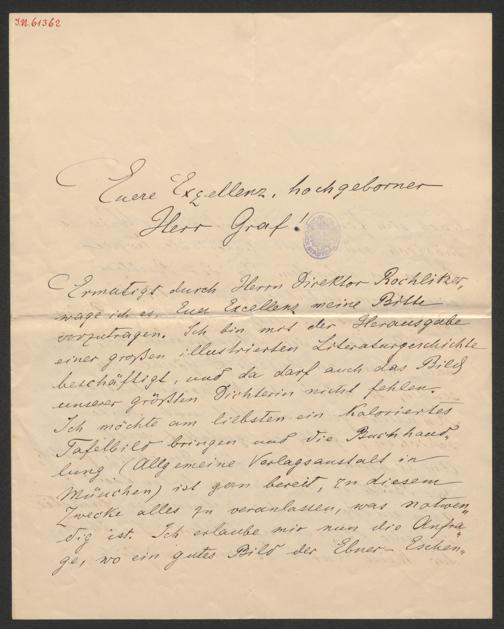 I.N. 61362
Euere Exzellenz, hochgeborner
Herr Graf!
Ermutigt durch Herrn Direktor Rochlitzer,
wage ich es, Euer Excellenz meine Bitte
vorzutragen. Ich bin mit der Herausgabe
einer großen illustrierten Literaturgeschichte
beschäftigt, und da darf auch das Bild
unserer größten Dichterin nicht fehlen.
Ich möchte am liebsten ein koloriertes
Tafelbild bringen und die Buchhand-
lung (Allgemeine Verlagsanstalt in
München) ist gern bereit, zu diesem
Zwecke alles zu veranlassen, was notwen-
dig ist. Ich erlaube mir nun die Anfra-
ge, wo ein gutes Bild der Ebner-Eschen-